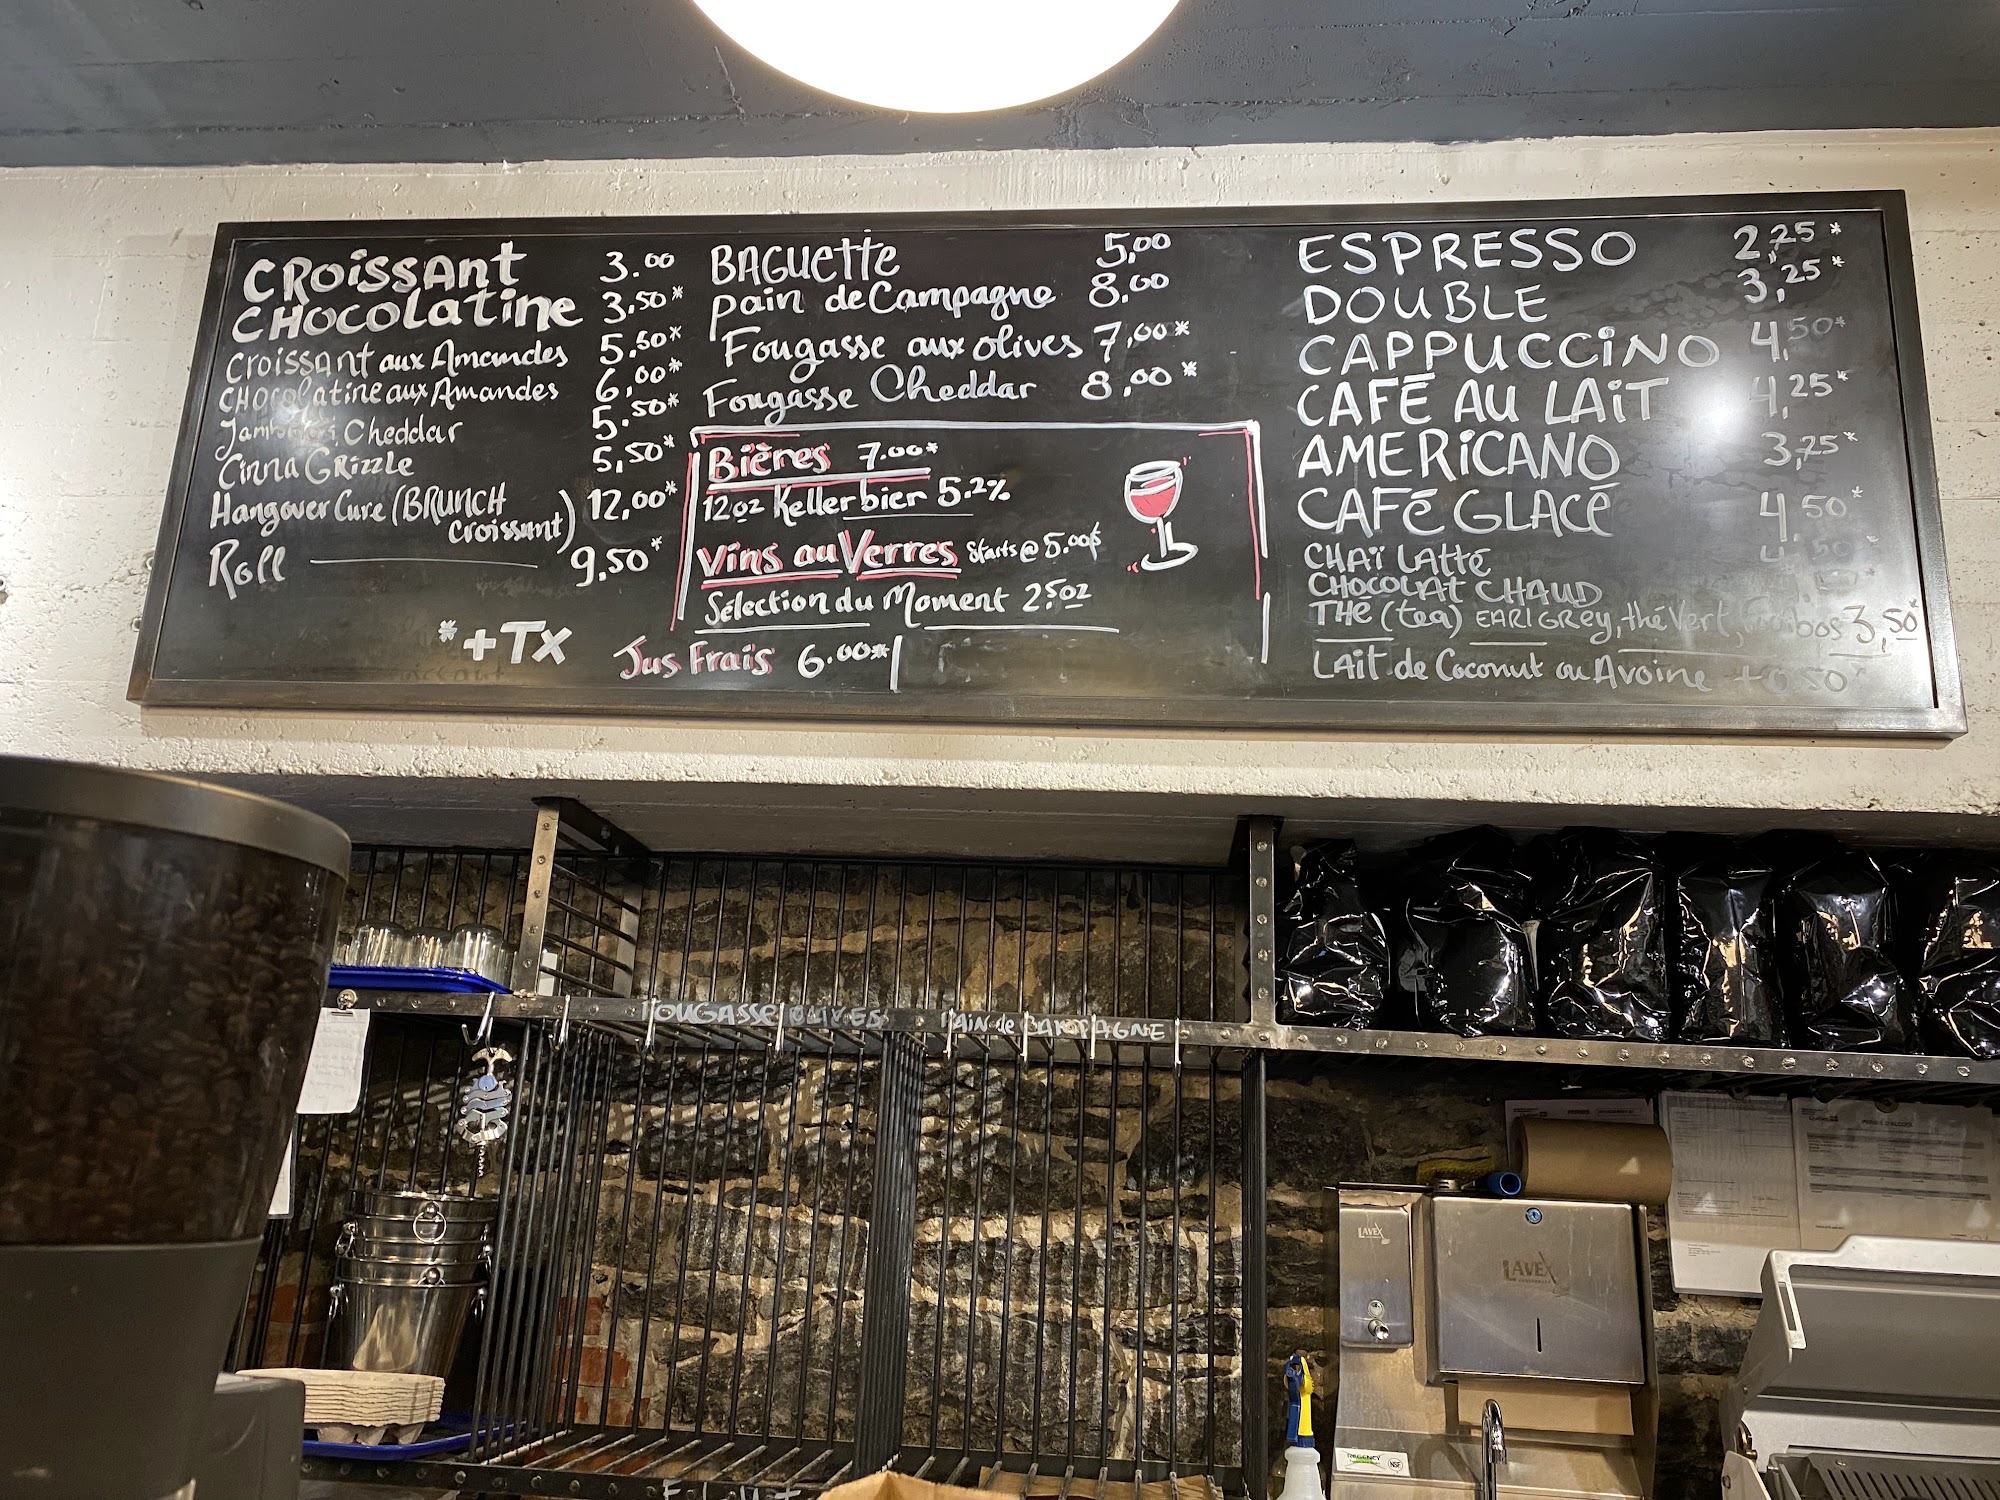 CROISSANT 3.00
CHOCOLATINE 3.50*
CROISSANT aux Amandes 5.50*
CHOCOLATINE aux Amandes 6,00*
Cheddar 5.50*
Cinna GRIZZLE 5,50*
Hangover Cure (BRUNCH Croissant) 12,00*
Roll 9,50*
*+TX
BAGUETTE 5,00
Pain de Campagne 8,00
Fougasse aux olives 7,00*
Fougasse Cheddar 8,00*
Bières 7.00*
12oz Kellerbier 5.2%
Vins au Verres Starts @ 5.00$
Sélection du Moment 2.5oz
Jus Frais 6.00*
ESPRESSO 2,25*
DOUBLE 3,25*
CAPPUCCINO 4,50*
CAFÉ AU LAIT 4,25*
AMERICANO 3,25*
CAFÉ GLACÉ 4,50*
CHAI LATTE 4,50*
CHOCOLAT CHAUD
THÉ (tea) EARL GREY, thé Vert, 3,50*
LAIT de Coconut ou Avoine +0,50*
FOUGASSE OLIVES
PAIN de CAMPAGNE
LAVEX
LAVEX
REGENCY
NSF